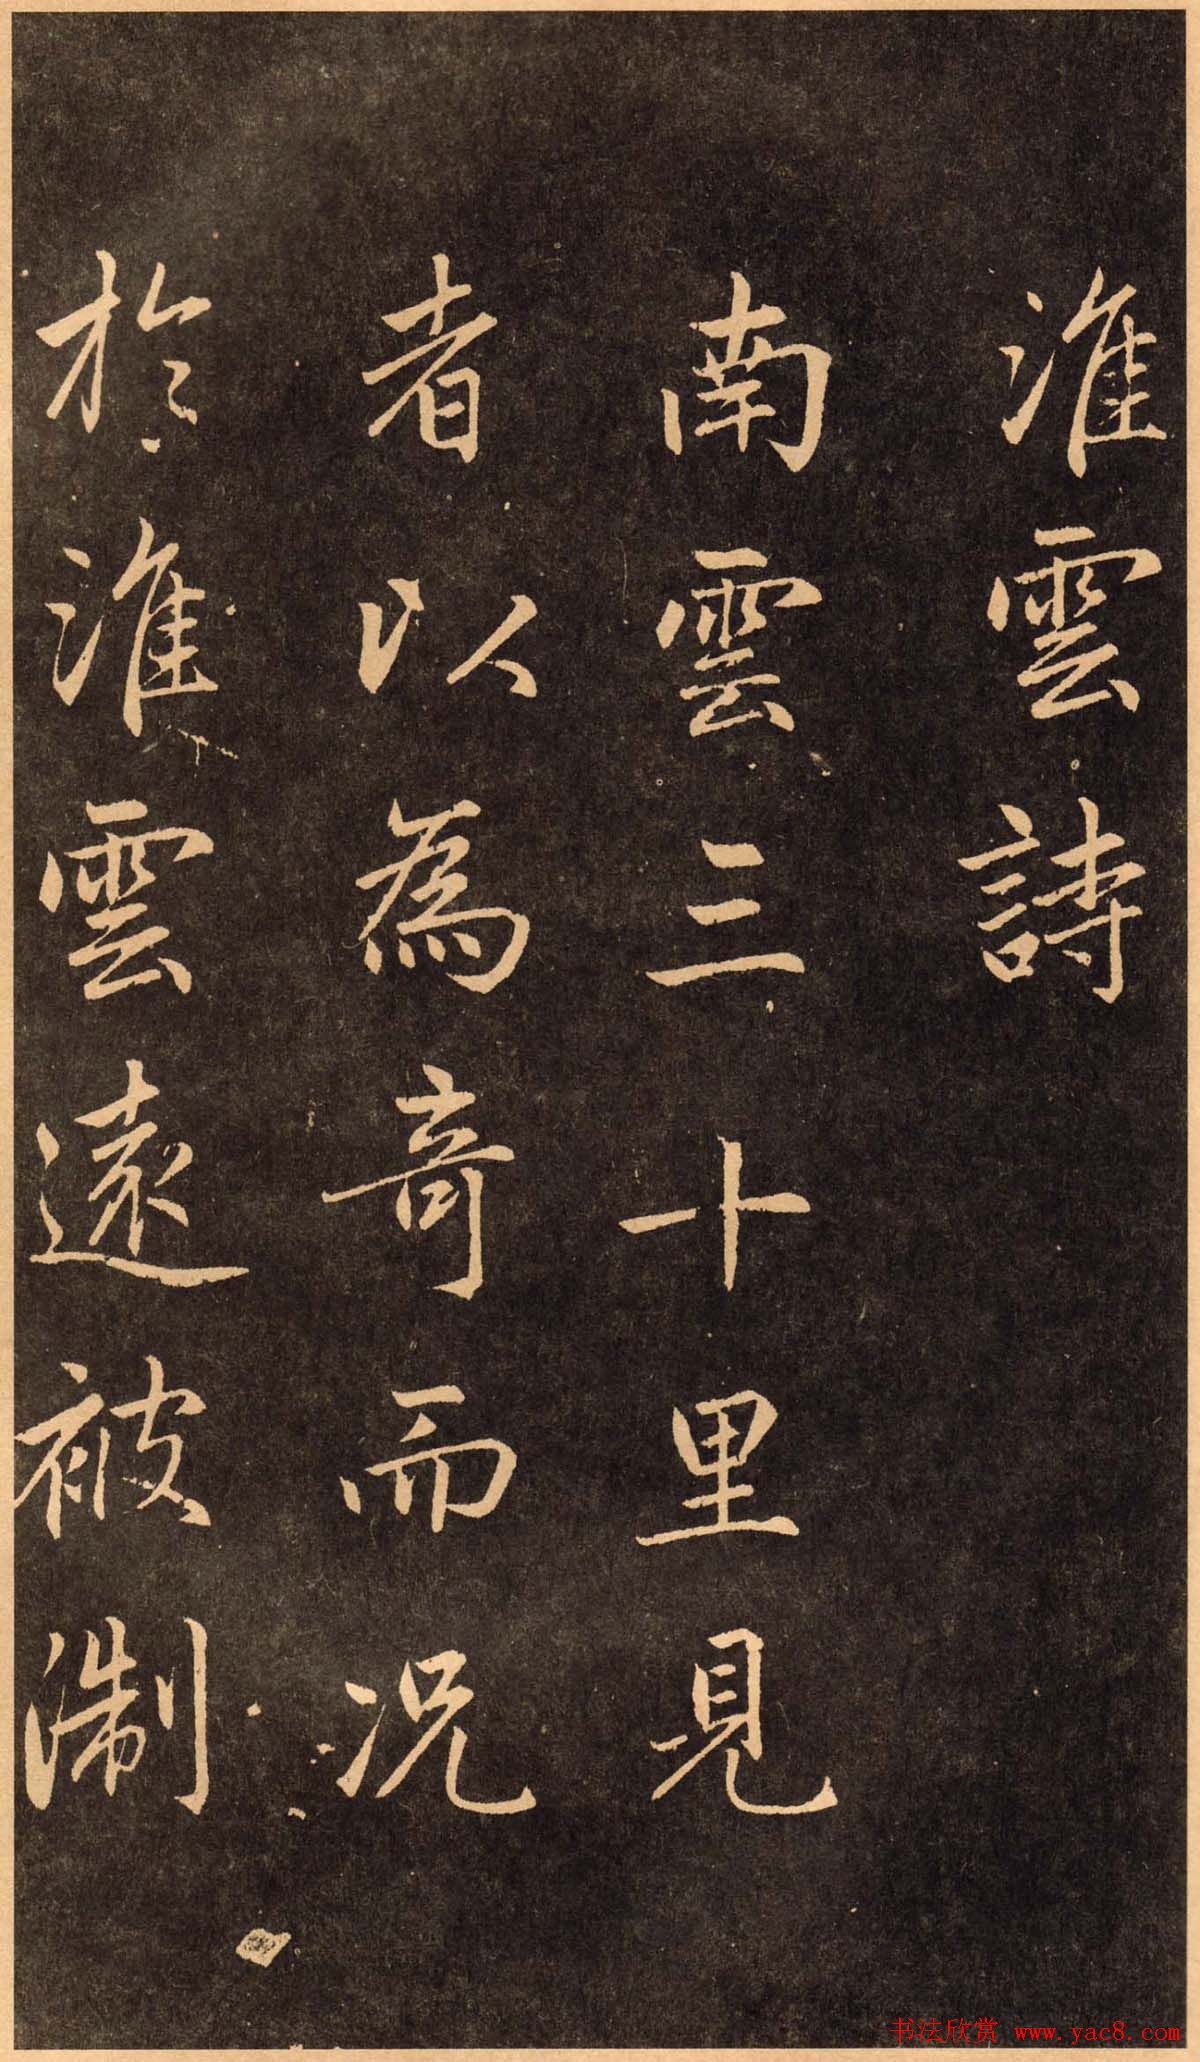 淮雲詩
南雲三十里見
者以為奇而況
於淮雲遠被淛
书法欣赏 www.yac8.com